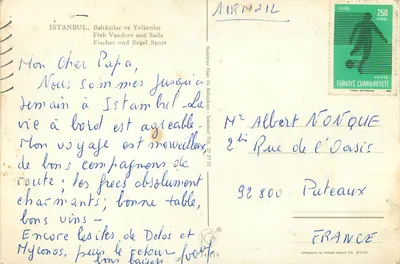 İSTANBUL, Balıkçılar ve Yelkenler
Fish Vandors and Sails
Fischer und Segel Sport
Mon Cher Papa,
Nous sommes jusqu'à
demain à Istambul La
vie à bord est agréable.
Mon voyage est merveilleux,
de bons compagnons de
route ; les grecs absolument
charmants ; bonne table,
bons vins –
Encore les îles de Delos et
Myconos, puis le retour
bons baisers
AIRMAIL
250
TÜRKİYE CUMHURİYETİ
Mr Albert NONQUE
2bis Rue de l'Oasis
92800. Puteaux
FRANCE